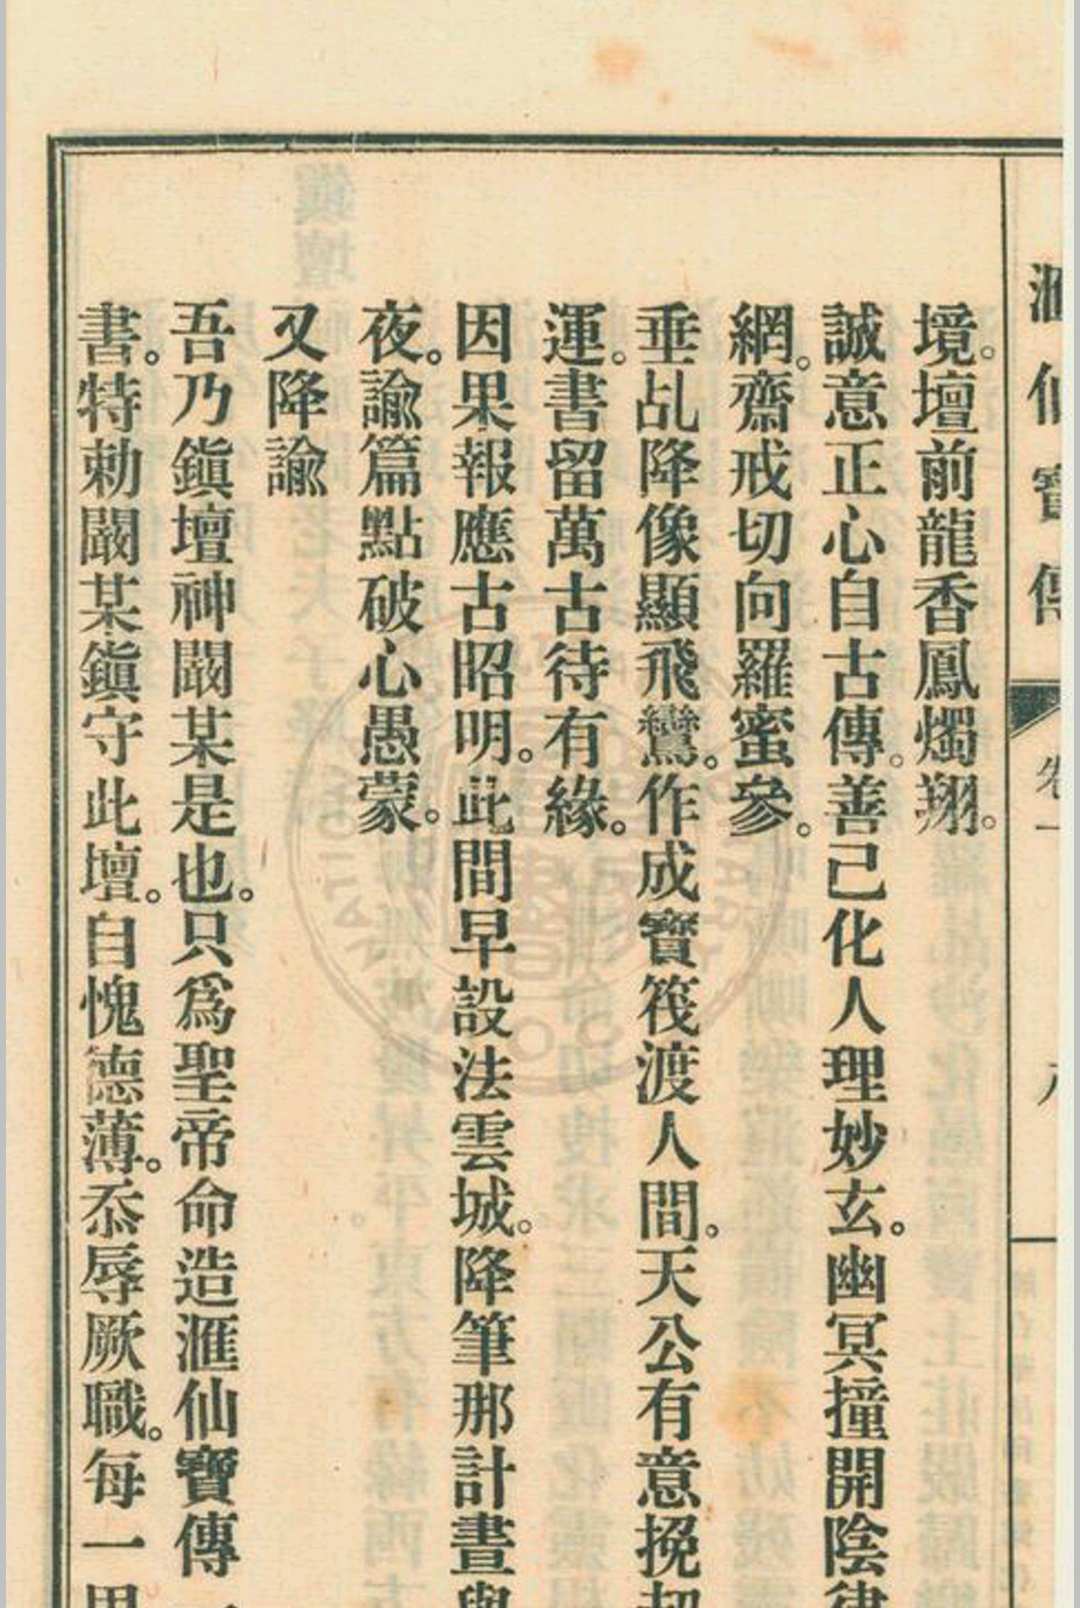 滙仙寶傳 卷一 八
境。壇前龍香鳳燭翔。
誠意正心自古傳。善己化人理妙玄。幽冥撞開陰律
網。齋戒切向羅蜜參。
垂乩降像顯飛鸞。作成寶筏渡人間。天公有意挽劫
運。書留萬古待有緣。
因果報應古昭明。此間早設法雲城。降筆那計晝與
夜。諭篇點破心愚蒙。
又降諭
吾乃鎮壇神闞某是也。只爲聖帝命造滙仙寶傳一
書。特勅闞某鎮守此壇。自愧德薄。忝辱厥職。每一